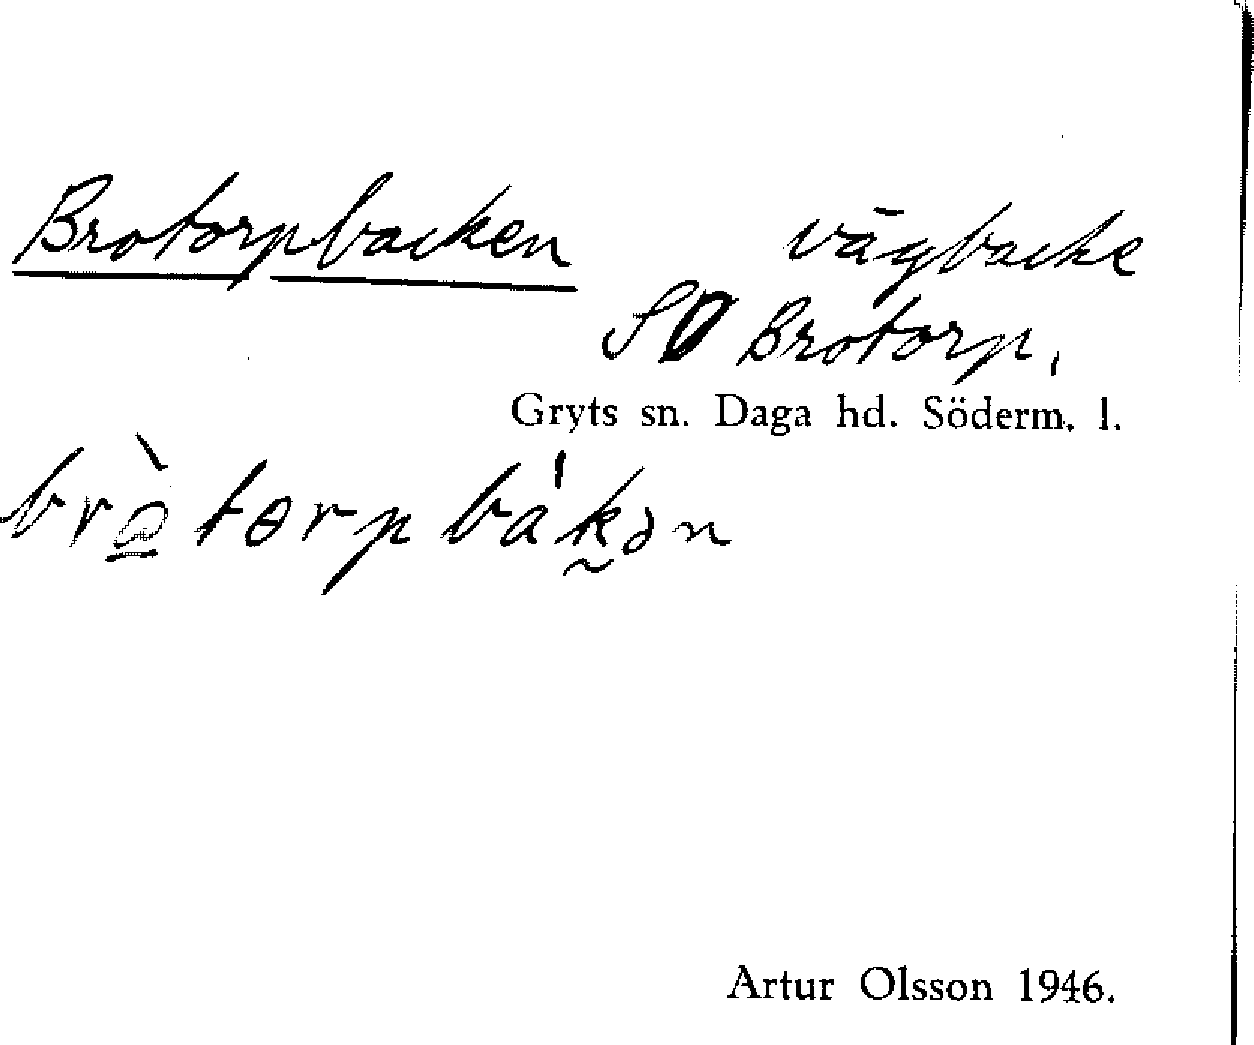 Brotorpbacken vägbacke
SO Brotorp.
Gryts sn. Daga hd. Söderm. l.
brò̲torpbákən
Artur Olsson 1946.